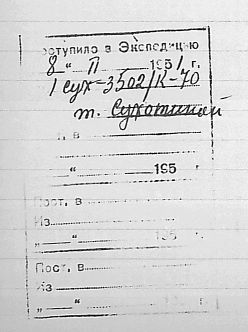 оступило в Экспедицию
8 " II 1951 г.
1 сух-3502/К-70
т. Сухотиной
, в
" 195 г.
Пост. в
Из
" " 195
Пост. в
Из
" "